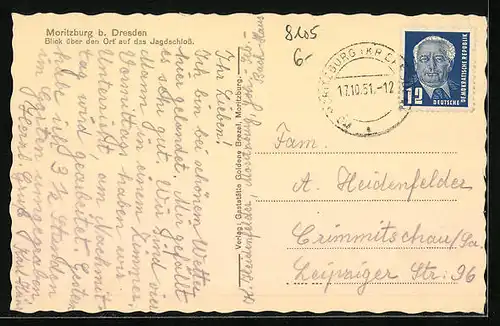 Moritzburg b. Dresden
Blick über den Ort auf das Jagdschloß.
8205
6-
MORITZBURG (KR.
17.10.51.-12
a
12
DEUTSCHE
DEMOKRATISCHE REPUBLIK
Verlag: Gaststätte Goldene Brezel, Moritzburg.
Ihr Lieben!
Ich bin bei schönem Wetter
hier gelandet. Mir gefällt
es sehr gut. Wir sind vier
Mann in einem Zimmer.
Vormittags haben wir
Unterricht, am Nachmit-
tag wird gearbeitet. Gestern
habe ich 3½ Stunden
im Garten umgegraben.
Herzl. Gruß
Fam.
A. Heidenfelder
Crimmitschau/Sa.
Leipziger Str. 96